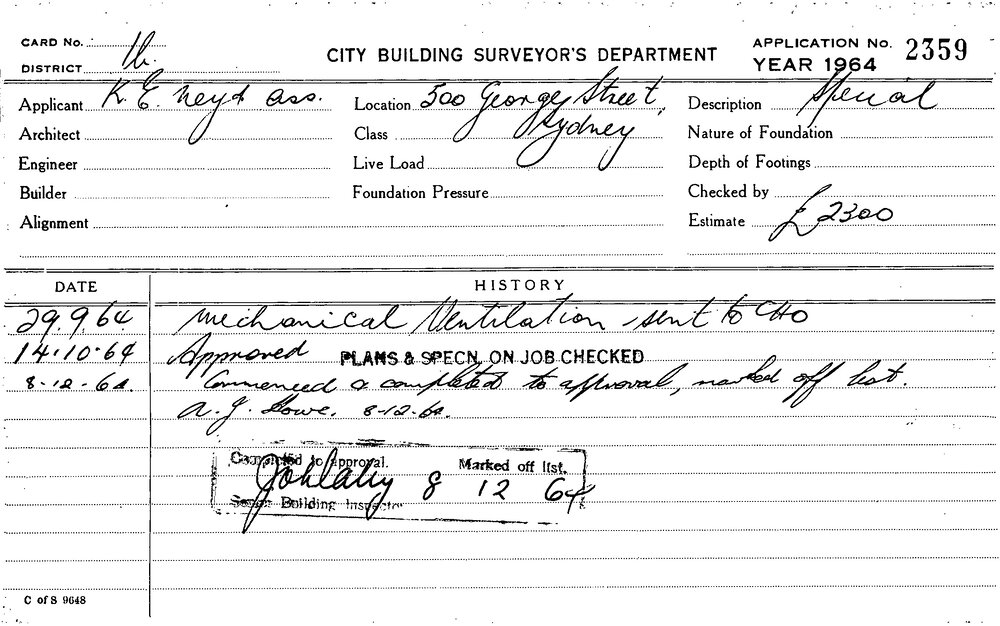 CARD No.
CITY BUILDING SURVEYOR'S DEPARTMENT
APPLICATION No. 2359
DISTRICT
YEAR 1964
Applicant K. E. Neyd Ass. Location 500 George Street, Description Special
Architect Class Sydney Nature of Foundation
Engineer Live Load Depth of Footings
Builder Foundation Pressure Checked by
Alignment Estimate £2300
DATE HISTORY
29.9.64 Mechanical Ventilation - sent to CHO
14.10.64 Approved PLANS & SPECN. ON JOB CHECKED
8.12.64 Commenced & completed to approval, marked off list.
A. J. Lowe. 8-12-64.
Completed to approval. Marked off list.
8 12 64
Senior Building Inspector
C of S 9648